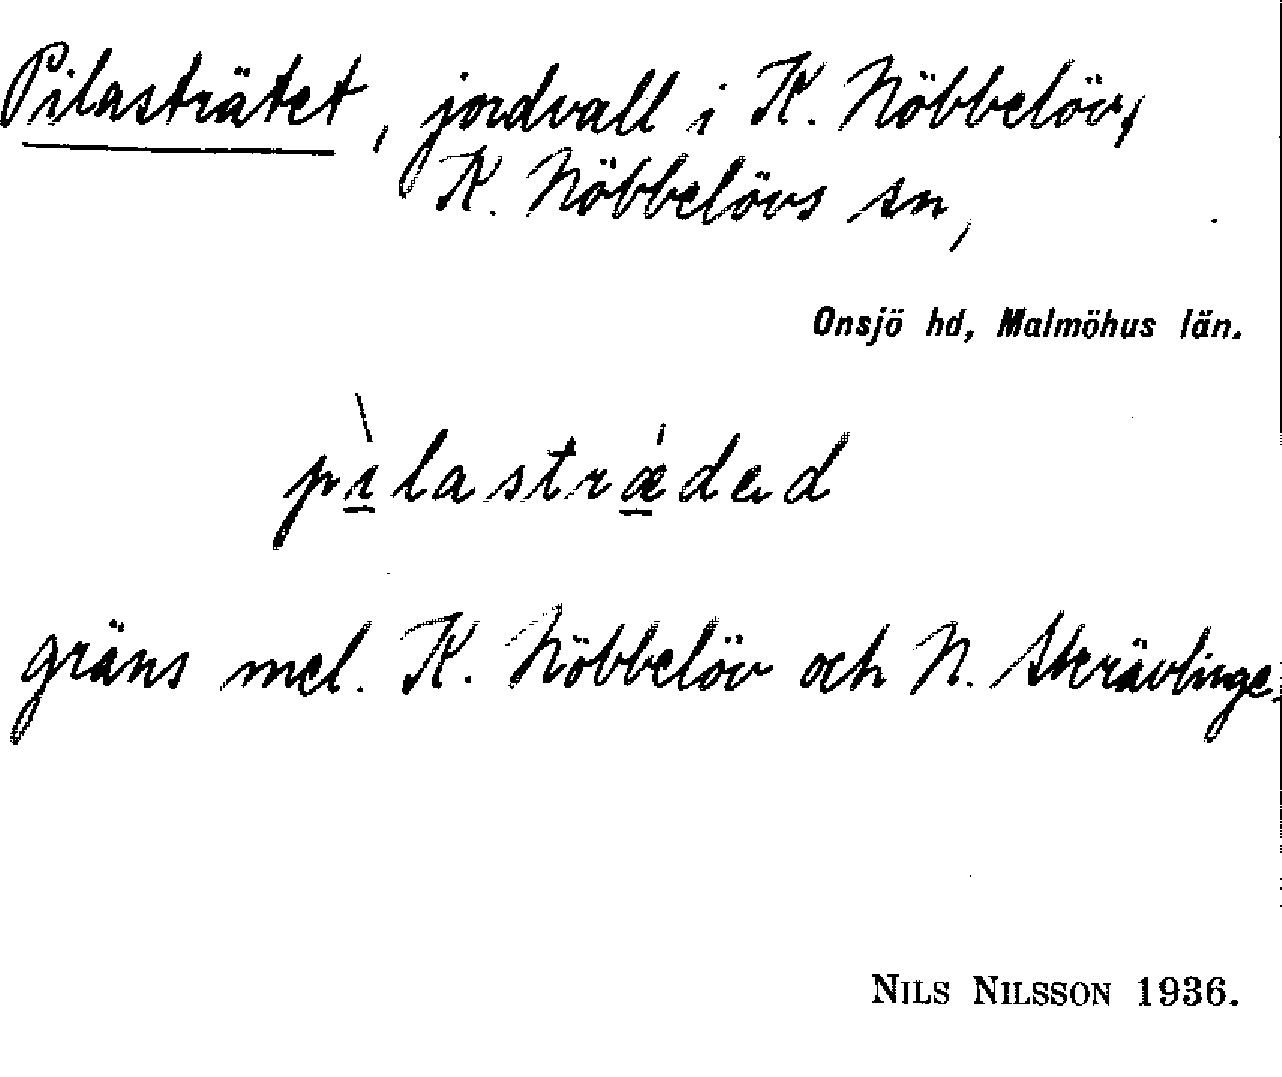 Pilasträtet, jordvall i K. Nöbbelöv,
K. Nöbbelövs sn,
Onsjö hd, Malmöhus län.
pìlastrǽdəd
gräns mel. K. Nöbbelöv och N. Skrävlinge.
NILS NILSSON 1936.